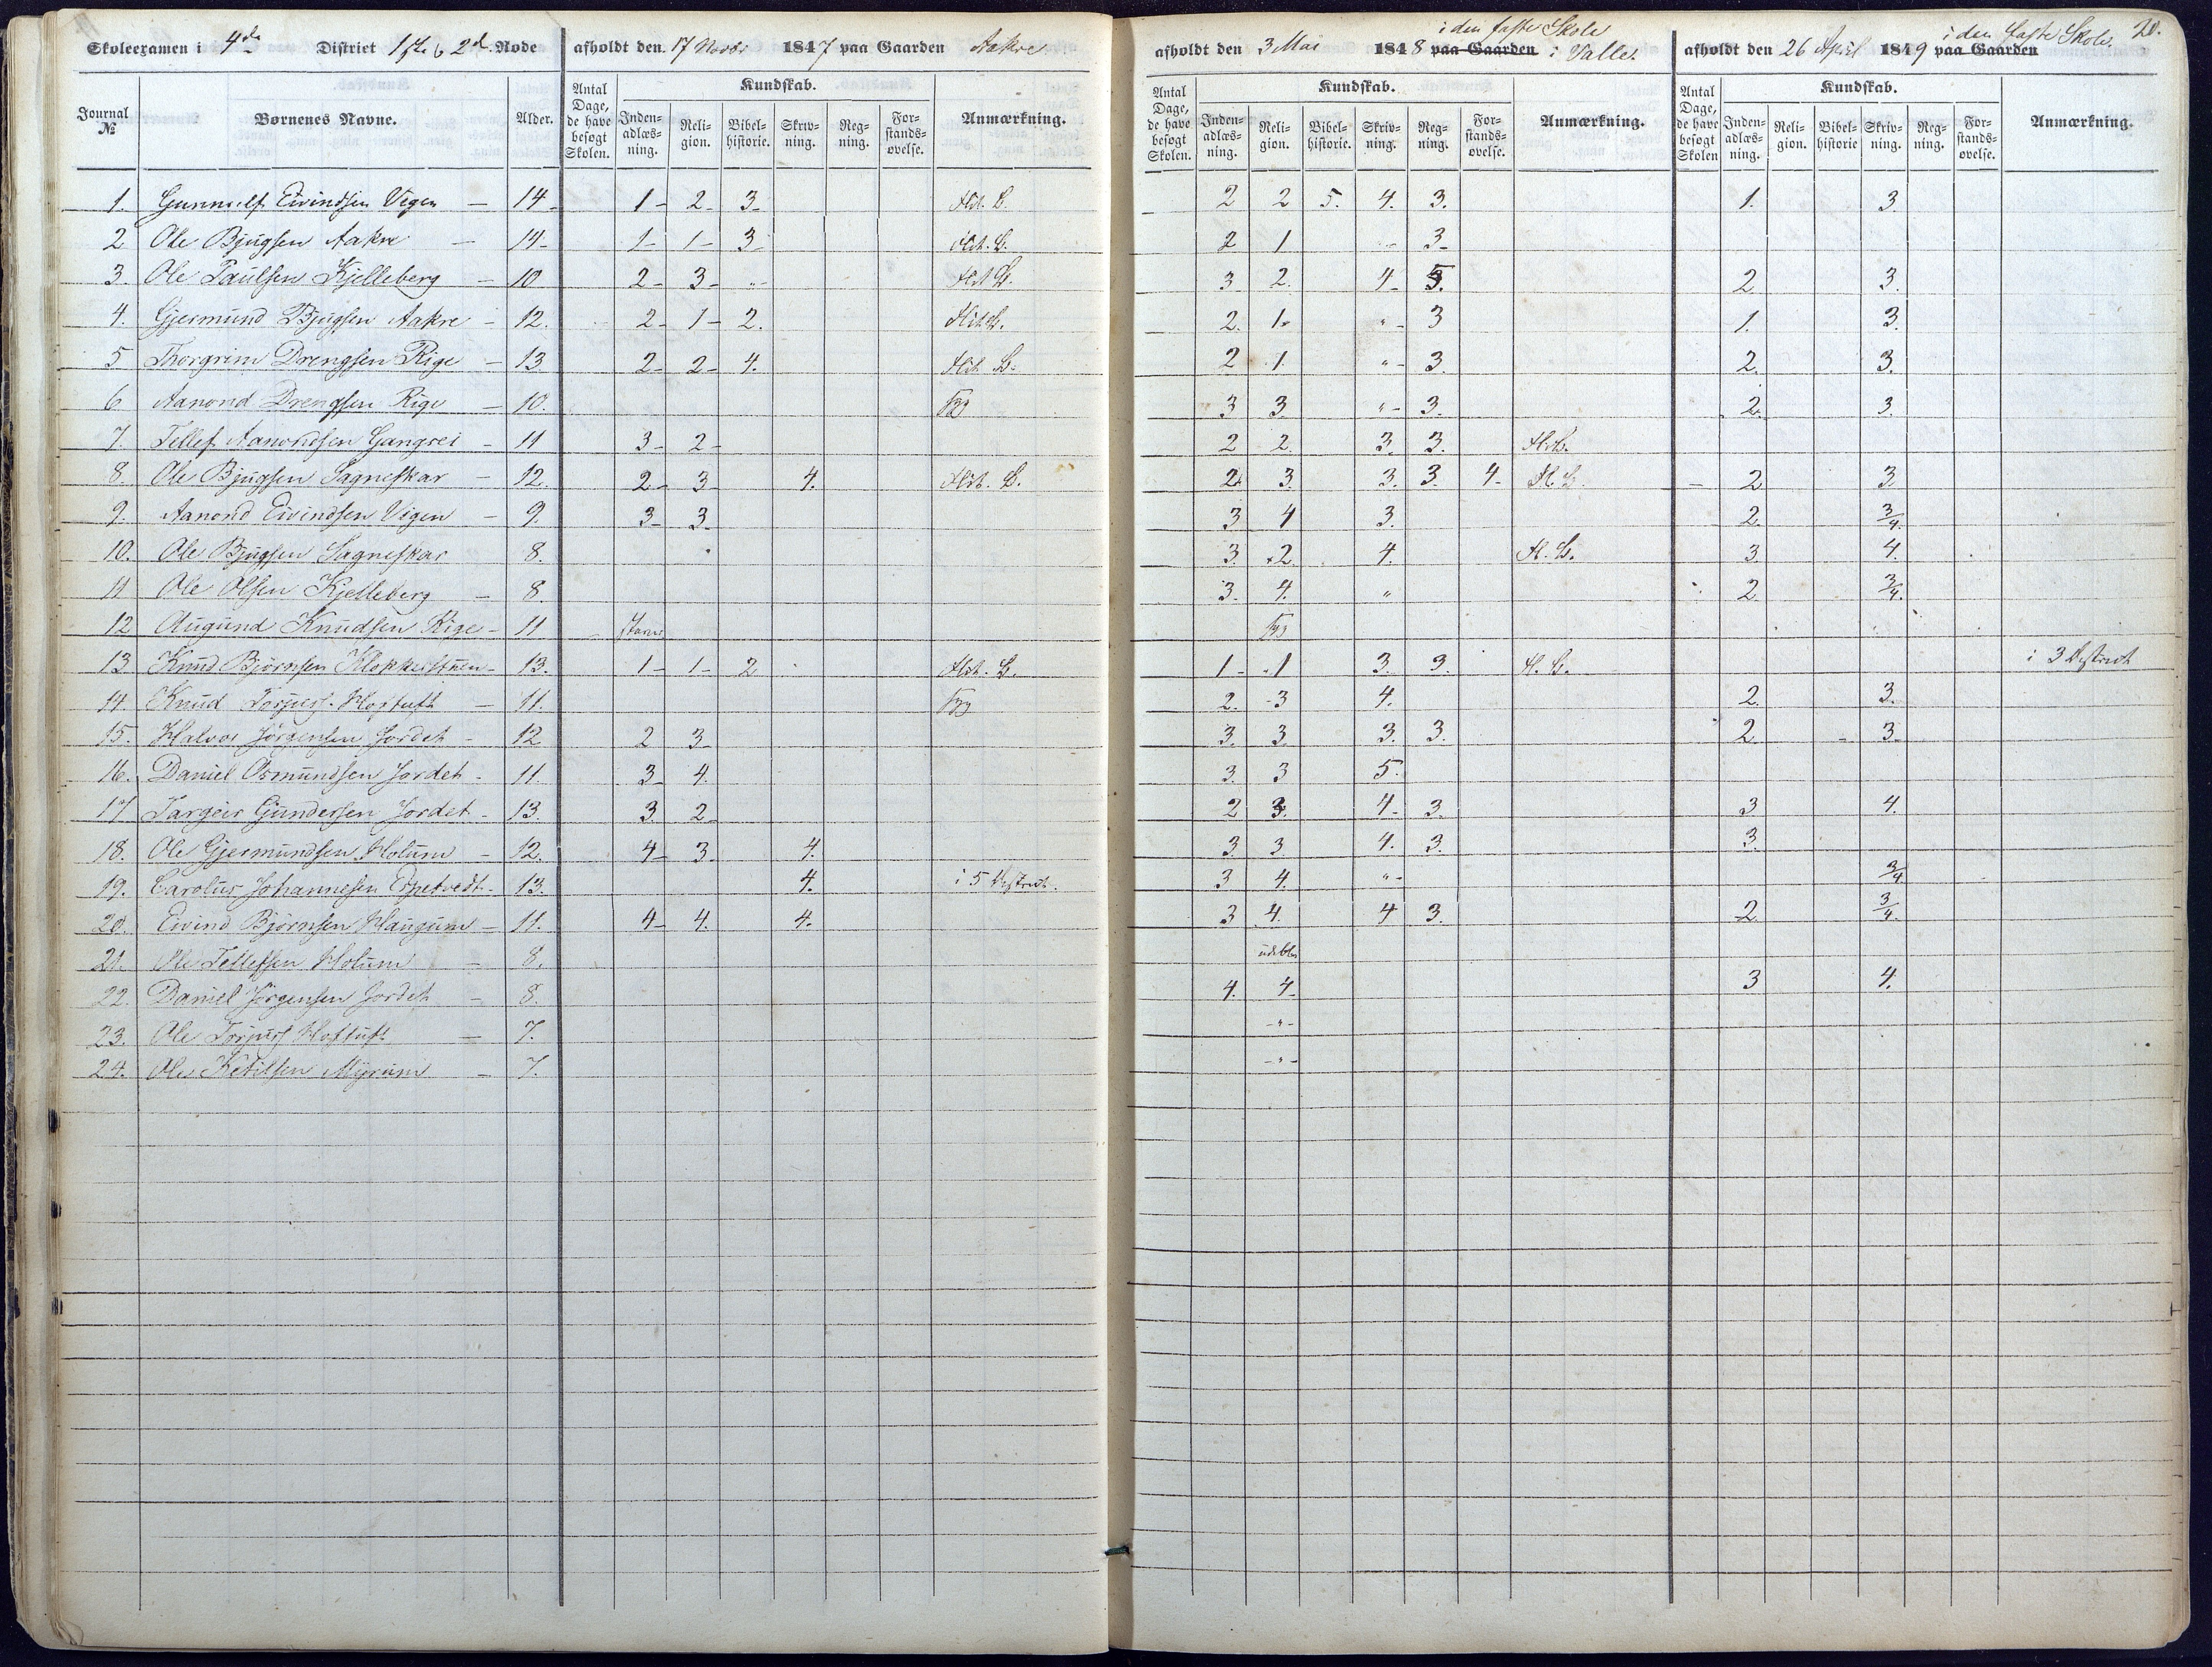 Skoleexamen i 4de District 1ste & 2den Rode afholdt den 17 Novbr 1847 paa Gaarden Aakre
afholdt den 3 Mai 1848 paa Gaarden i den faste Skole i Valle.
afholdt den 26 April 1849 paa Gaarden i den faste Skole. 20.
Journal № Børnenes Navne. Alder. Antal Dage, de have besøgt Skolen. Kundskab. Inden-adlæs-ning. Reli-gion. Bibel-historie. Skriv-ning. Reg-ning. For-stands-øvelse. Anmærkning.
Antal Dage, de have besøgt Skolen. Kundskab. Inden-adlæs-ning. Reli-gion. Bibel-historie. Skriv-ning. Reg-ning. For-stands-øvelse. Anmærkning.
Antal Dage, de have besøgt Skolen Kundskab. Inden-adlæs-ning. Reli-gion. Bibel-historie Skriv-ning. Reg-ning. For-stands-øvelse. Anmærkning.
1. Eivindsen Vigen — 14 1 2 3 2 2 5. 4. 3. 1. 3.
2 Ole Bjugsen Aakre — 14 1 1 3 2 1 " 3
3. Ole Paulsen Kjelleberg — 10 2 3 " 3 2. 4 3. 2 3.
4. Gjermund Bjugsen Aakre — 12. 2 1 2. 2. 1. " 3 1. 3.
5 Thorgrim Drengsen Rige — 13 2 2 4. 2 1. " 3. 2. 3.
6 Aanond Drengsen Rige — 10. 3 3. " 3. 2. 3.
7. Tellef Aanondsen Gangsei — 11 3 2 2 2. 3. 3.
8. Ole Bjugsen Sagneskar — 12. 2 3 4. 2. 3. 3. 3. 4 2 3.
9. Aanond Eivindsen Vigen — 9. 3 3 3 4 3. 2. 3/4.
10. Ole Bjugsen Sagneskar 8. 3. 2 4. H. B. 3. 4.
11 Ole Olsen Kjelleberg — 8. 3. 4. " 2. 3/4.
12 Augund Knudsen Rige — 11
13 Knud Bjørnsen — 13. 1 1 2 1 1 3. 3. H. B. i 3 District
14. Knud Torjus. Hoftuft — 11. 2. 3 4. 2. 3.
15. Halvor Jörgensen Jordet — 12 2 3 3. 3. 3. 3. 2. 3.
16. Daniel Osmundsen Jordet — 11. 3 4. 3. 3 5.
17 Targeir Gundersen Jordet — 13. 3. 2 2 3. 4 3. 3 4.
18. Ole Gjermundsen Holum — 12. 4 3 4. 3. 3. 4. 3. 3.
19. Carolus Johannesen — 13. 4. i 5 District. 3 4. " 3/4
20. Eivind Bjørnsen Haugum — 11. 4 4. 4. 3 4. 4 3. 2 3/4.
21. Ole Tellefsen Holum — 8.
22. Daniel Jörgensen Jordet — 8. 4. 4 3 4.
23. Ole Torjus. Hoftuft — 7. - " -
24. Ole Ketilsen Myrum — 7. - " -